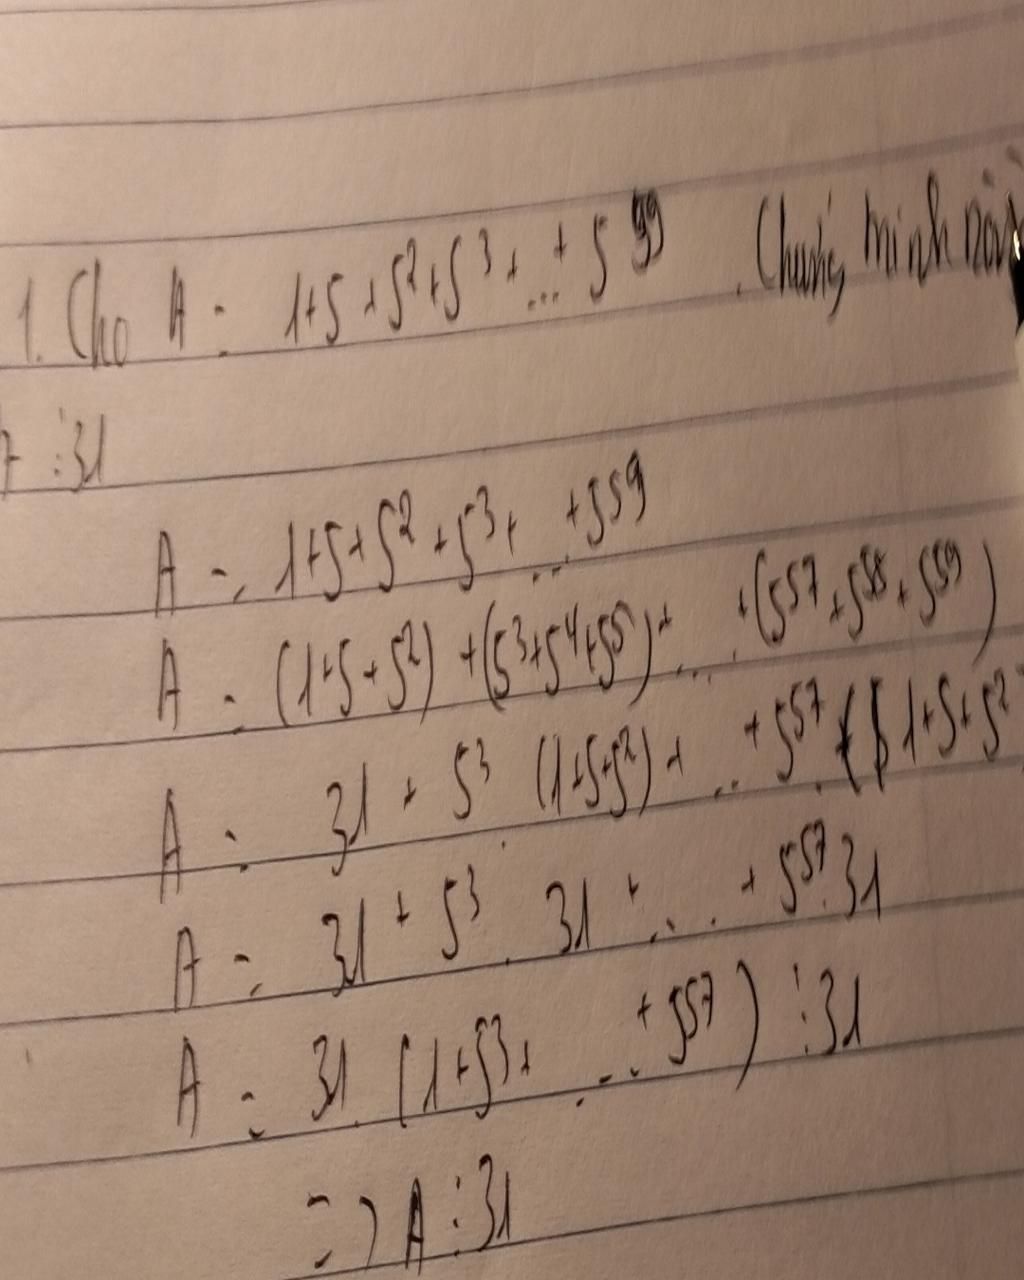 1. Cho A = 1+5+5²+5³+...+5⁹⁹. Chứng minh rằng
⋮31
A = 1+5+5²+5³+...+5⁵⁹
A = (1+5+5²)+(5³+5⁴+5⁵)+...+(5⁵⁷+5⁵⁸+5⁵⁹)
A = 31 + 5³ (1+5+5²)+...+5⁵⁷.(1+5+5²
A = 31 + 5³.31 +...+ 5⁵⁷.31
A = 31.(1+5³+...+5⁵⁷) ⋮31
=> A ⋮31